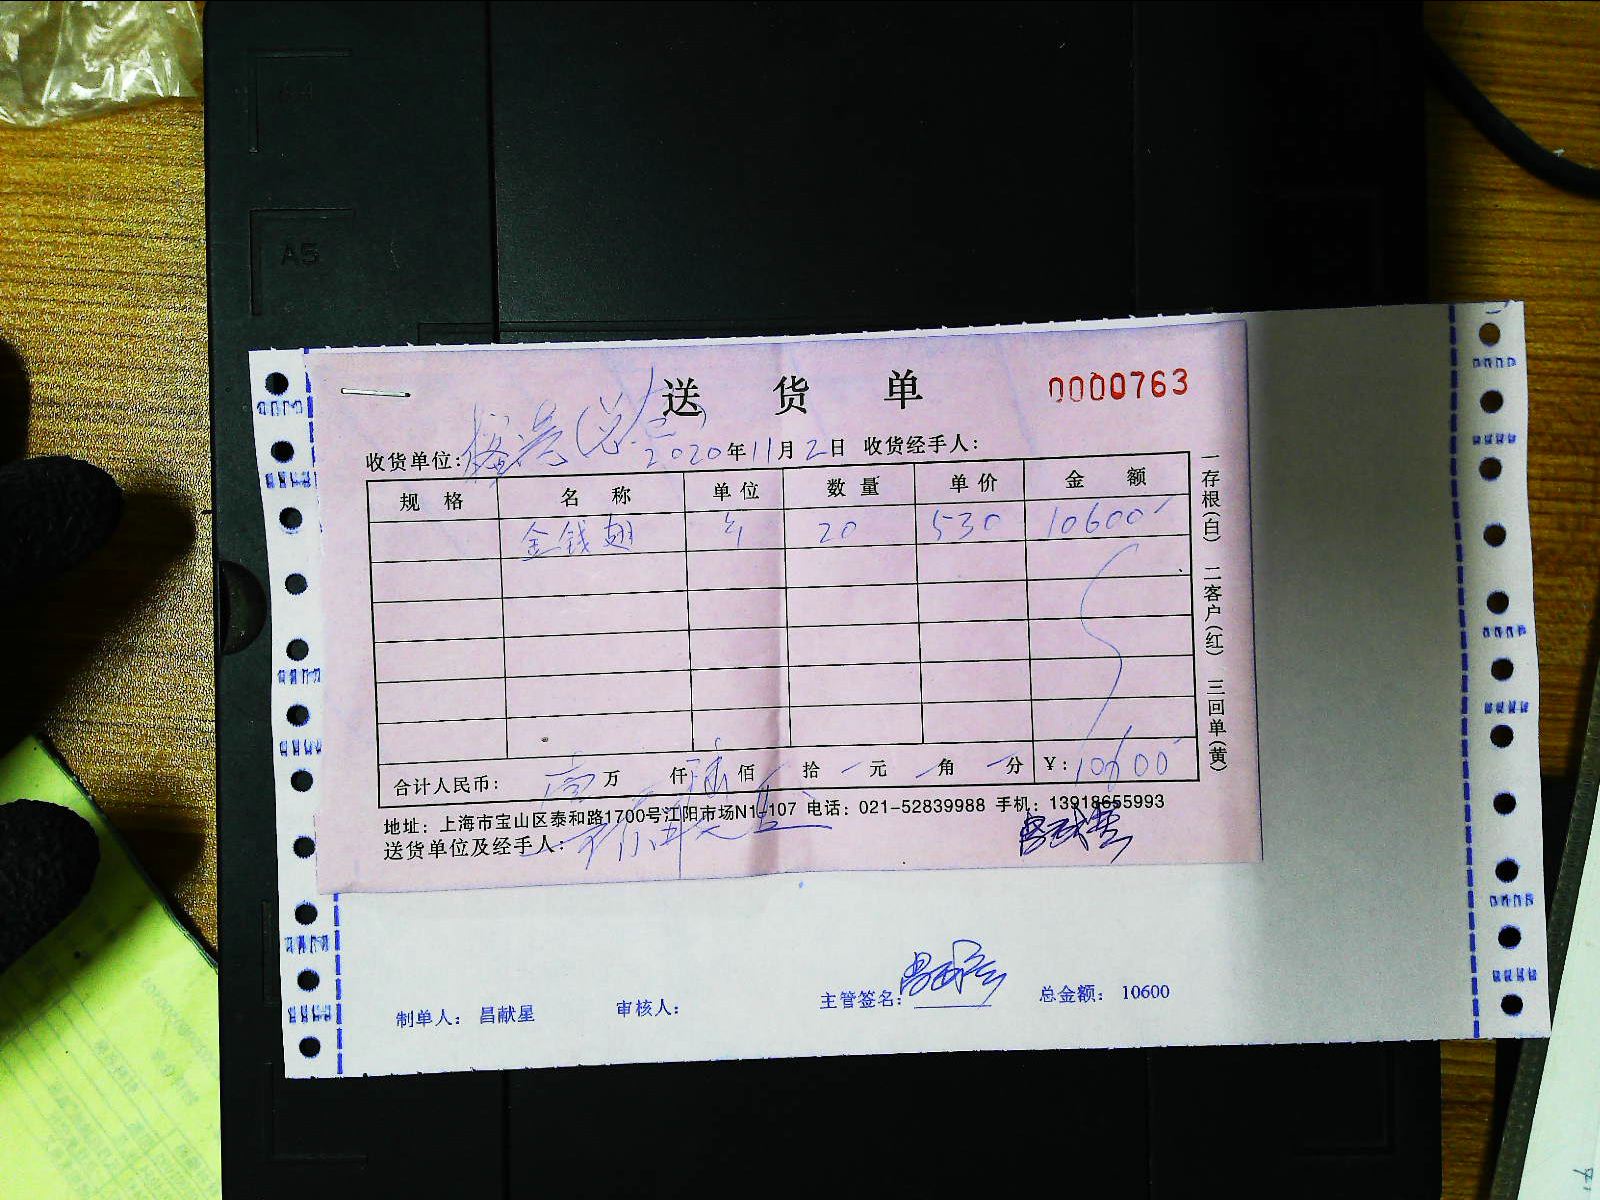 A4
A5
送 货 单 0000763
收货单位: 2020年11月2日 收货经手人:
规 格 名 称 单 位 数 量 单 价 金 额
金钱翅 20 530 10600
一存根(白) 二客户(红) 三回单(黄)
合计人民币: 万 仟 佰 拾 元 角 分 ¥: 10600
地址: 上海市宝山区泰和路1700号江阳市场N1-107 电话: 021-52839988 手机: 13918655993
送货单位及经手人:
制单人: 昌献星 审核人: 主管签名: 总金额: 10600